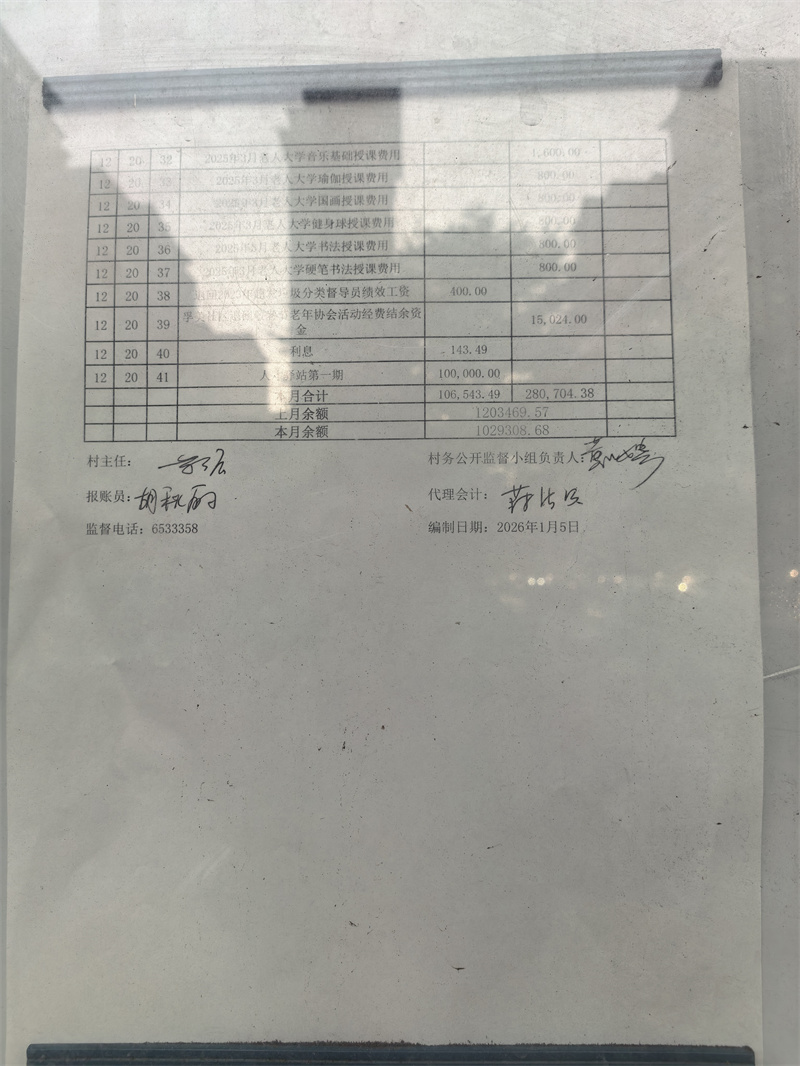 12 20 32 2025年3月老人大学音乐基础授课费用 1,600.00
12 20 33 2025年3月老人大学瑜伽授课费用 800.00
12 20 34 2025年3月老人大学国画授课费用 800.00
12 20 35 2025年3月老人大学健身球授课费用 800.00
12 20 36 2025年3月老人大学书法授课费用 800.00
12 20 37 2025年3月老人大学硬笔书法授课费用 800.00
12 20 38 级分类督导员绩效工资 400.00
12 20 39 老年协会活动经费结余资金 15,024.00
12 20 40 利息 143.49
12 20 41 站第一期 100,000.00
本月合计 106,543.49 280,704.38
上月余额 1203469.57
本月余额 1029308.68
村主任： 村务公开监督小组负责人：
报账员： 代理会计：
监督电话：6533358 编制日期：2026年1月5日